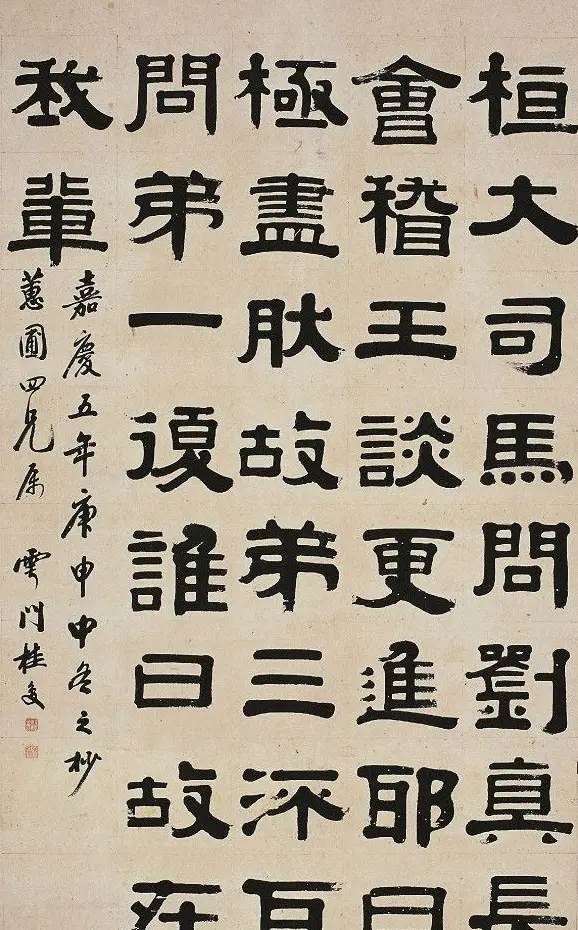 桓大司馬問劉真長
會稽王談更進耶曰
極盡肰故弟三流耳
問弟一復誰曰故在
我輩
嘉慶五年庚申中冬之杪
蕙圃四兄属 雲門桂馥